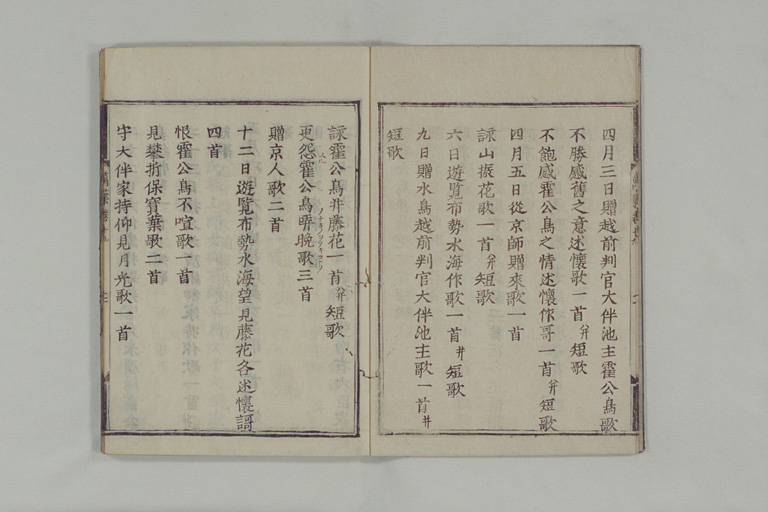 四月三日贈越前判官大伴池主霍公鳥歌
不勝感舊之意述懷歌一首并短歌
不飽感霍公鳥之情述懷作哥一首并短歌
四月五日從京師贈來歌一首
詠山振花歌一首并短歌
六日遊覧布勢水海作歌一首并短歌
九日贈水鳥越前判官大伴池主歌一首并
短歌
詠霍公鳥并藤花一首并短歌
更怨霍公鳥哢晚歌三首
贈京人歌二首
十二日遊覧布勢水海望見藤花各述懷謌
四首
恨霍公鳥不喧歌一首
見攀折保寶葉歌二首
守大伴家持仰見月光歌一首